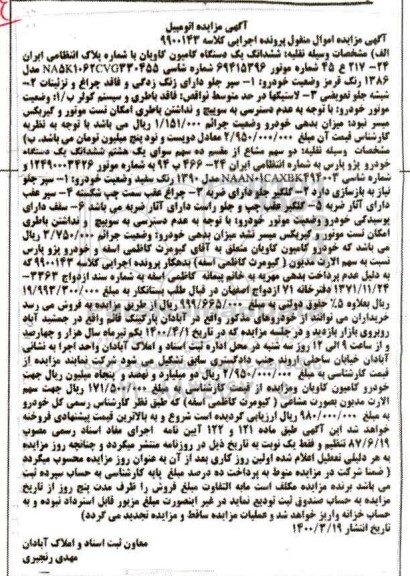 آگهی مزایده اتومبیل
آگهی مزایده اموال منقول پرونده اجرایی کلاسه ۹۹۰۰۱۴۳
الف) مشخصات وسیله نقلیه: ششدانگ یک دستگاه کامیون کاویان با شماره پلاک انتظامی ایران
۲۴- ۲۱۷ ع ۴۵ شماره موتور ۶۹۴۱۵۳۹۶ شماره شاسی NA5K1۰۶۲CVG۳۳۰۴۵۵ مدل
۱۳۸۶ رنگ قرمز وضعیت خودرو: ۱- سپر جلو دارای رنگ زدگی و فاقد چراغ و تزئینات ۲-
شیشه جلو تعویضی ۳- لاستیکها در حد متوسط نواقص: فاقد باطری و سیستم کولر ب/۱: وضعیت
موتور خودرو: با توجه به عدم دسترسی به سوییچ و نداشتن باطری امکان تست موتور و گیربکس
میسر نبود: میزان بدهی خودرو وضعیت جرائم ۱/۱۵۱/۰۰۰ ریال می باشد با توجه به نظریه
کارشناس قیمت آن مبلغ ۲/۹۵۰/۰۰۰/۰۰۰ معادل دویست و نود پنج میلیون تومان می باشد. ب)
مشخصات وسیله نقلیه: دو سهم مشاع از مقسم ده سهم سوای یک هشتم ششدانگ یک دستگاه
خودرو پژو پارس به شماره انتظامی ایران ۲۴- ۴۶۶ ب ۹۴ به شماره موتور ۱۲۴۹۰۰۰۳۴۲۶ و
شماره شاسی NAAN۰1CAXBK۴۹۴۰۰۳ مدل ۱۳۹۰ رنگ سفید وضعیت خودرو: ۱- سپر جلو
نیاز به بازسازی دارد ۲- گلگیر جلو دارای ضربه ۳- چراغ عقب سمت چپ شکسته ۴- سپر عقب
دارای آثار ضربه ۵- گلگیر عقب چپ و جلو راست دارای آثار ضربه می باشد ۶- سقف دارای
پوسیدگی خودرو وضعیت موتور خودرو: با توجه به عدم دسترسی به سوییچ و نداشتن باطری
امکان تست موتور و گیربکس میسر نشد میزان بدهی خودرو: وضعیت جرائم ۳/۷۵۰/۰۰۰ ریال
می باشد که خودرو کامیون کاویان متعلق به آقای کیومرث کاظمی اسفه و خودرو پژو پارس
نسبت به سهم الارث مدیون ( کیومرث کاظمی اسفه) بدهکار پرونده اجرایی کلاسه ۹۹۰۰۱۴۳ که
به دلیل عدم پرداخت بدهی مهریه به خانم پیمانه کاظمی اسفه به شماره سند ازدواج ۳۳۶۳-
۱۳۷۱/۱۱/۲۴ دفترخانه ۷۱ ازدواج اصفهان در قبال طلب بستانکار به مبلغ ۱۹/۹۹۳/۳۰۰/۰۰۰
ریال بعلاوه ۵٪ حقوق دولتی به مبلغ ۹۹۹/۶۶۵/۰۰۰ ریال از طریق مزایده به فروش می رسد
خریداران می توانند از خودروهای مذکور واقع در آبادان پارکینگ قائم واقع در جمشید آباد
روبروی بازار بازدید و در جلسه مزایده که در تاریخ ۱۴۰۰/۴/۱ یکم تیرماه سال هزار و چهارصد
و از ساعت ۹ الی ۱۲ روز سه شنبه در محل اداره ثبت اسناد و املاک آبادان واحد اجرا به نشانی
آبادان خیابان ساحلی اروند جنب دادگستری سابق تشکیل می شود شرکت نمایند مزایده از
قیمت کارشناسی به مبلغ ۲/۹۵۰/۰۰۰/۰۰۰ ریال دو میلیارد و نهصد و پنجاه میلیون ریال جهت
خودرو کامیون کاویان ومزایده از قیمت کارشناسی به مبلغ ۱۷۱/۵۰۰/۰۰۰ ریال جهت سهم
الارث مدیون بصورت مشاعی ( کیومرث کاظمی اسفه) که طبق نظر کارشناس رسمی کل خودرو
به مبلغ ۹۸۰/۰۰۰/۰۰۰ ریال ارزیابی گردیده است شروع و به بالاترین قیمت پیشنهادی فروخته
خواهد شد این آگهی طبق ماده ۱۲۱ و ۱۲۲ آیین نامه اجرای مفاد اسناد رسمی مصوب
۸۷/۶/۱۹ تنظیم و فقط یک نوبت به تاریخ ذیل در روزنامه منتشر میگردد و چنانچه روز مزایده
به هر دلیلی تعطیل اعلام شده اولین روز کاری بعد از آن به عنوان روز مزایده محسوب میگردد
( ضمنا شرکت در مزایده منوط به پرداخت ده درصد مبلغ پایه کارشناسی به حساب سپرده ثبت
می باشد برنده مزایده مکلف است مابه التفاوت مبلغ فروش را ظرف مدت پنج روز از تاریخ
مزایده به حساب صندوق ثبت تودیع نماید در غیر اینصورت مبلغ مزبور قابل استرداد نبوده و به
حساب خزانه واریز خواهد شد و عملیات مزایده ساقط و مزایده تجدید می گردد)
تاریخ انتشار ۱۴۰۰/۳/۱۹
معاون ثبت اسناد و املاک آبادان
مهدی رنجبری